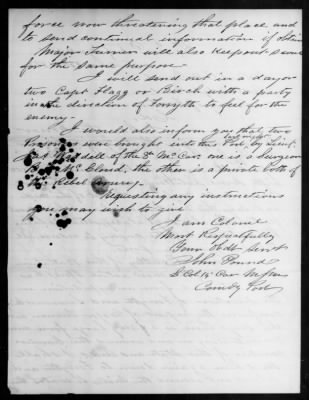 force now threatening that place and
to send continual information if obtain
Major Turner will also keep out scouts
for the same purpose
I will send out in a day or
two Capt Flagg or Birch with a party
in the direction of Forsyth to feel for the
enemy.
I would also inform you that two
Prisoners were brought into this Post, by Lieut.
last night
of the 8" Mo Cav. one is a Surgeon
McCloud, the other is a private both of
the Rebel Army
Requesting any instructions
you may wish to give
I am Colonel
Most Respectfully
Your Obdt Servt
John Pound
Lt Col 15" Cav
Comdg Post